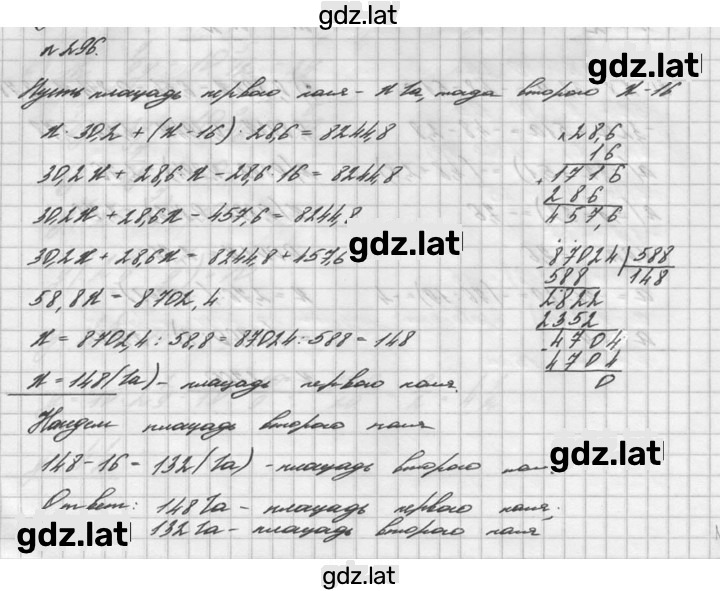 gdz.lat
№ 296.
gdz.lat
Пусть площадь первого поля - x га, тогда второго x-16
x · 30,2 + (x - 16) · 28,6 = 8244,8
30,2x + 28,6 · x - 28,6 · 16 = 8244,8
30,2x + 28,6x - 457,6 = 8244,8
30,2x + 28,6x = 8244,8 + 457,6
58,8x = 8702,4
x = 8702,4 : 58,8 = 87024 : 588 = 148
x = 148 (га) - площадь первого поля.
Найдем площадь второго поля
148 - 16 = 132 (га) - площадь второго поля.
Ответ: 148 га - площадь первого поля;
132 га - площадь второго поля
× 28,6
16
+ 1716
286
457,6
- 87024 | 588
588 148
- 2822
2352
- 4704
4704
0
gdz.lat
gdz.lat
gdz.lat
gdz.lat